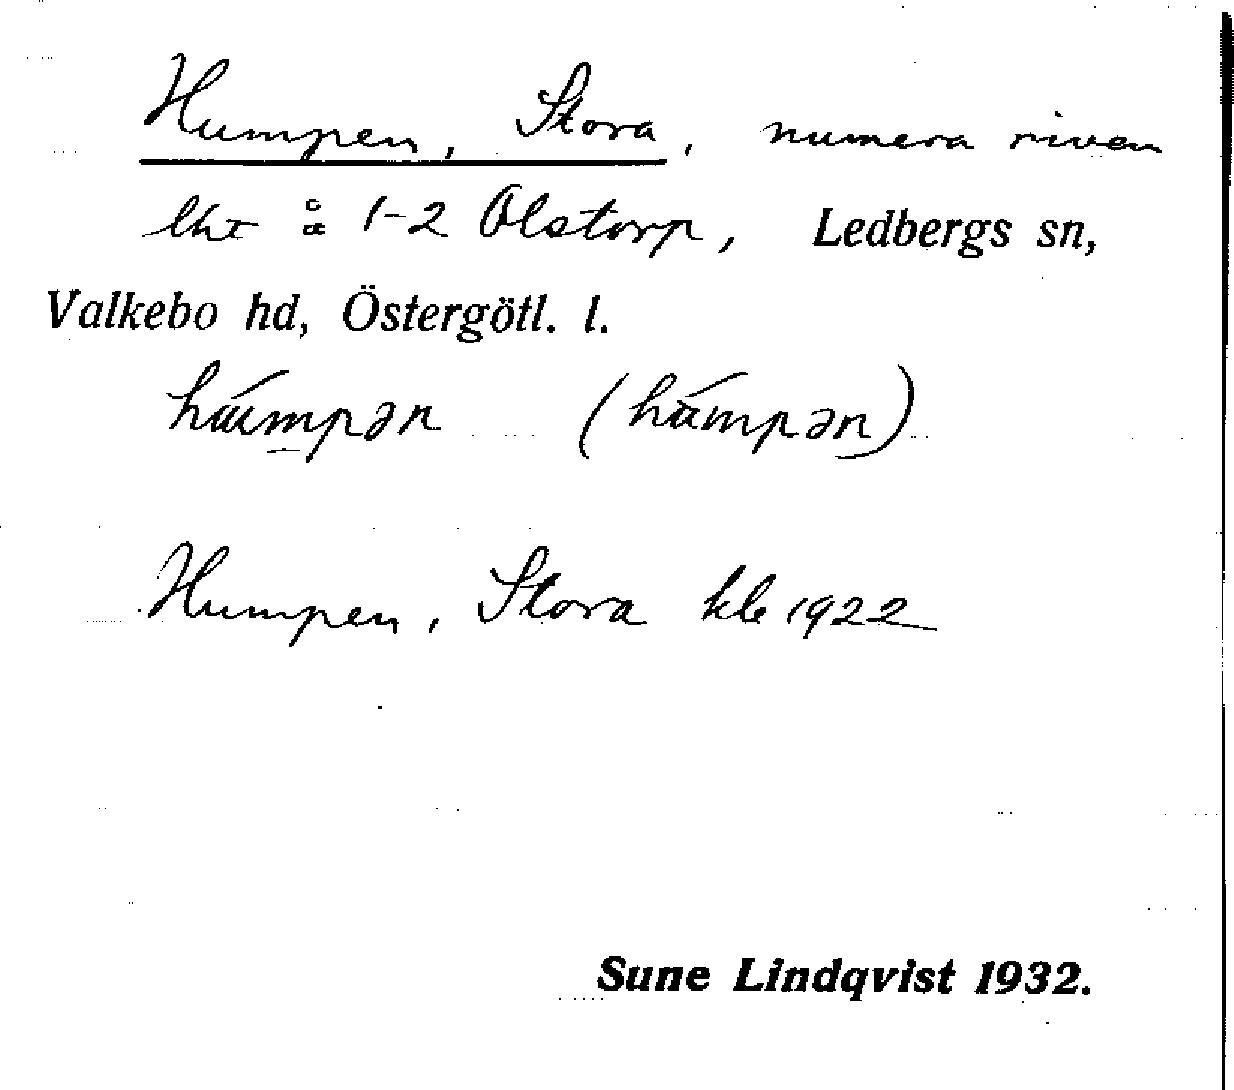 Humpen, Stora, numera riven
lht å 1-2 Olstorp, Ledbergs sn,
Valkebo hd, Östergötl. l.
Humpen, Stora kb 1922
Sune Lindqvist 1932.